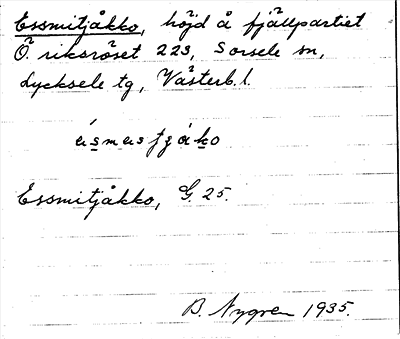 Essmitjåkko, höjd å fjällpartiet
Ö. riksröset 223, Sorsele sn,
Lycksele tg, Västerb. l.
Essmitjåkko, G. 25.
B. Nygren 1935.